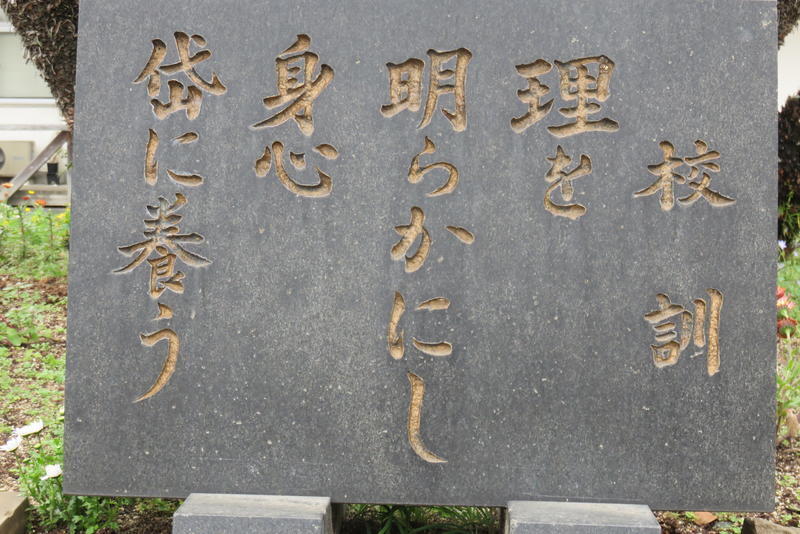 校訓
理を
明らかにし
身心
岱に養う